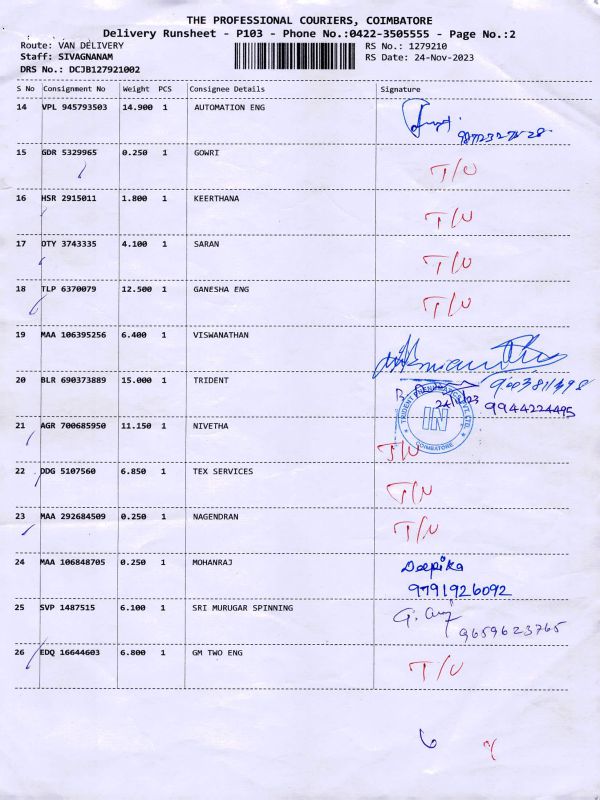 THE PROFESSIONAL COURIERS, COIMBATORE
Delivery Runsheet - P103 - Phone No.:0422-3505555 - Page No.:2
Route: VAN DELIVERY RS No.: 1279210
Staff: SIVAGNANAM RS Date: 24-Nov-2023
DRS No.: DCJB127921002
S No Consignment No Weight PCS Consignee Details Signature
14 VPL 945793503 14.900 1 AUTOMATION ENG
15 GDR 5329965 0.250 1 GOWRI
T/U
16 HSR 2915011 1.800 1 KEERTHANA
T/U
17 OTY 3743335 4.100 1 SARAN
T/U
18 TLP 6370079 12.500 1 GANESHA ENG
T/U
19 MAA 106395256 6.400 1 VISWANATHAN
20 BLR 690373889 15.000 1 TRIDENT
24/11/23 9944224495
TRIDENT PNEUMATICS PVT. LTD.
IN
COIMBATORE
21 AGR 700685950 11.150 1 NIVETHA
T/U
22 DDG 5107560 6.850 1 TEX SERVICES
T/U
23 MAA 292684509 0.250 1 NAGENDRAN
T/U
24 MAA 106848705 0.250 1 MOHANRAJ Deepika
9791926092
25 SVP 1487515 6.100 1 SRI MURUGAR SPINNING
9659623765
26 EDQ 16644603 6.800 1 GM TWO ENG
T/U
6